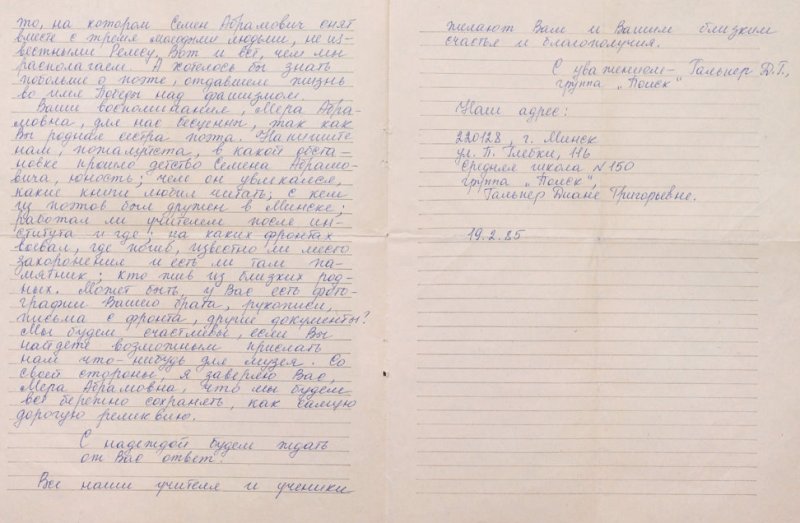 то, на котором Семен Абрамович снят
вместе с тремя молодыми людьми, не из-
вестными Релесу. Вот и все, чем мы
располагаем. А хотелось бы знать
побольше о поэте, отдавшем жизнь
во имя Победы над фашизмом.
Ваши воспоминания, Мера Абра-
мовна, для нас бесценны, так как
Вы родная сестра поэта. Напишите
нам, пожалуйста, в какой обста-
новке прошло детство Семена Абрамо-
вича, юность; чем он увлекался,
какие книги любил читать; с кем
из поэтов был дружен в Минске;
работал ли учителем после ин-
ститута и где; на каких фронтах
воевал, где погиб, известно ли место
захоронения и есть ли там па-
мятник; кто жив из близких род-
ных. Может быть, у Вас есть фото-
графии Вашего брата, рукописи,
письма с фронта, другие документы?
Мы будем счастливы, если Вы
найдете возможным прислать
нам что-нибудь для музея. Со
своей стороны, я заверяю Вас,
Мера Абрамовна, что мы будем
все бережно сохранять, как самую
дорогую реликвию.
С надеждой будем ждать
от Вас ответ.
Все наши учителя и ученики
желают Вам и Вашим близким
счастья и благополучия.
С уважением – Гальпер Д.Г.,
группа „Поиск"
Наш адрес:
220128, г. Минск
ул. П. Глебки, 116
Средняя школа N 150
группа „Поиск",
Гальпер Диане Григорьевне.
19.2.85